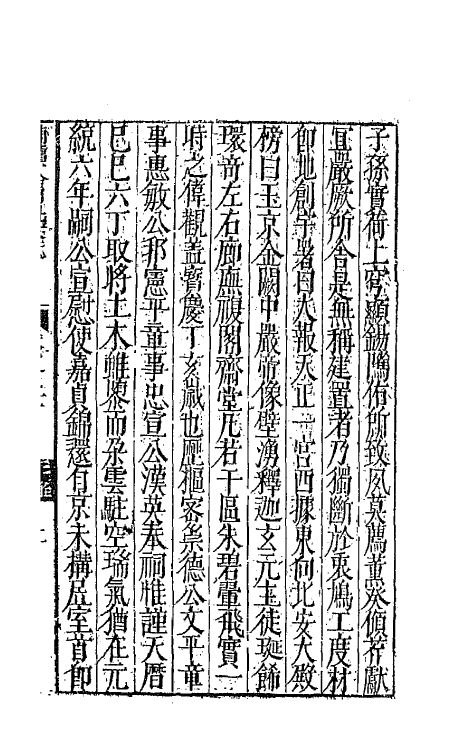 子孫實荷上穹顯錫陽佑所致夙莫薦熏祭脩荐獻
宜嚴厥所舍是無稱建置者乃獨斷於衷鳩工度材
卽地創宇署曰大報天正一宮西據東向北安大殿
榜曰玉京金闕中嚴帝像壁湧釋迦玄元玉徒珽飾
環奇左右廊廡複閣齋堂凡若干區朱碧翬飛實一
時之偉觀葢寶慶丁亥歲也歷樞密崇德公文平章
事惠敏公邦憲平章事忠宣公漢英奉祠惟謹天曆
己巳六丁取將土木雖燼而朶雲駐空瑞氣猶在元
統六年嗣公宣慰使嘉貞錦還自京未構居室首卽